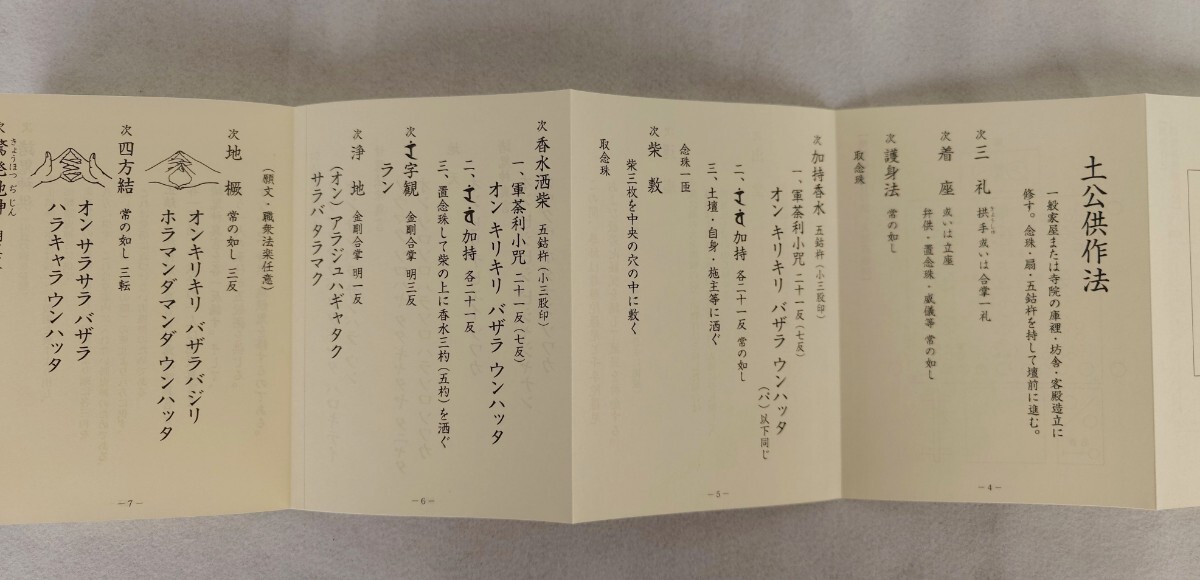 土公供作法
一般家屋または寺院の庫裡・坊舎・客殿造立に
修す。念珠・扇・五鈷杵を持して壇前に進む。
次 三礼 拱手或いは合掌一礼
次 着座 或いは立座
弁供・置念珠・威儀等 常の如し
次 護身法 常の如し
取念珠
－4－
次 加持香水 五鈷杵（小三股印）
一、軍荼利小咒 二十一反（七反）
オン キリキリ バザラ ウンハッタ
（バ）以下同じ
二、加持 各二十一反 常の如し
三、土壇・自身・施主等に洒ぐ
念珠一匝
次 柴敷
柴三枚を中央の穴の中に敷く
取念珠
－5－
次 香水洒柴 五鈷杵（小三股印）
一、軍荼利小咒 二十一反（七反）
オン キリキリ バザラ ウンハッタ
二、加持 各二十一反
三、置念珠して柴の上に香水三杓（五杓）を洒ぐ
次 字観 金剛合掌 明三反
ラン
次 浄地 金剛合掌 明一反
（オン）アラジュハギャタク
サラバ タラマク
－6－
（願文・職衆法楽任意）
次 地橛 常の如し 三反
オンキリキリ バザラバジリ
ホラマンダマンダ ウンハッタ
次 四方結 常の如し 三転
オン サラサラ バザラ
ハラキャラ ウンハッタ
次 驚発地神
きょうほつ ぢ じん
－7－